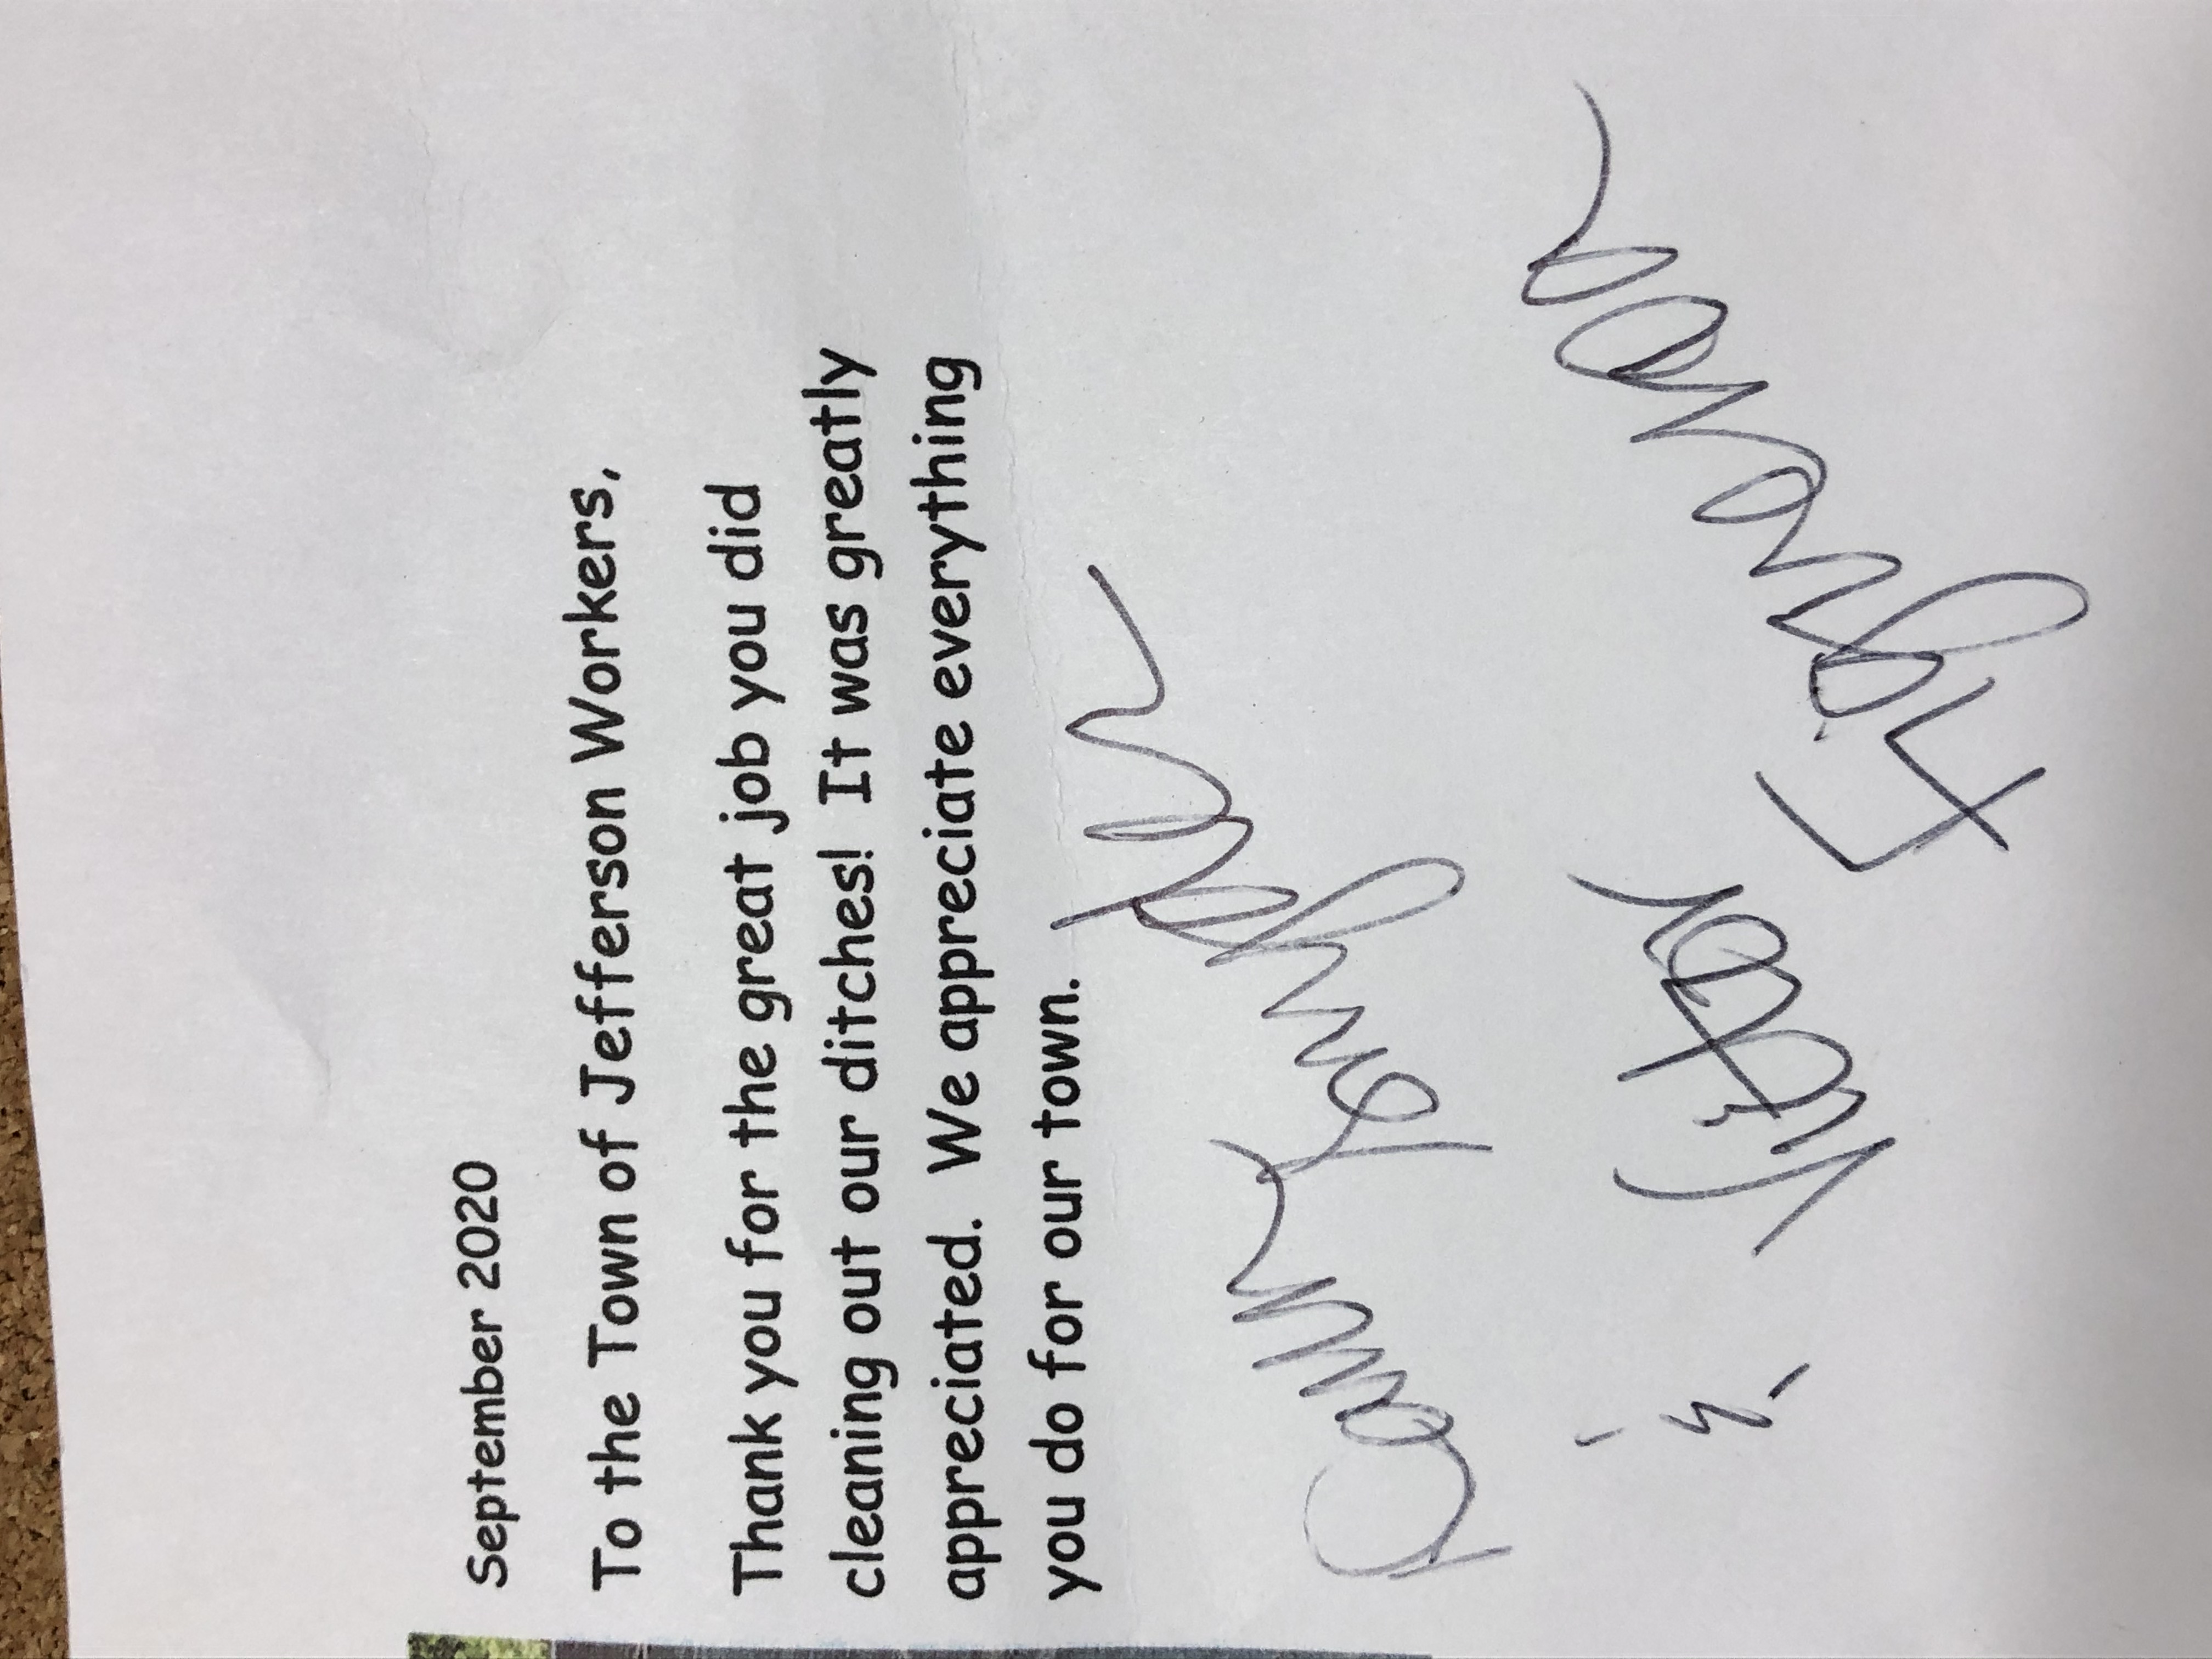 September 2020
To the Town of Jefferson Workers,
Thank you for the great job you did
cleaning out our ditches! It was greatly
appreciated. We appreciate everything
you do for our town.